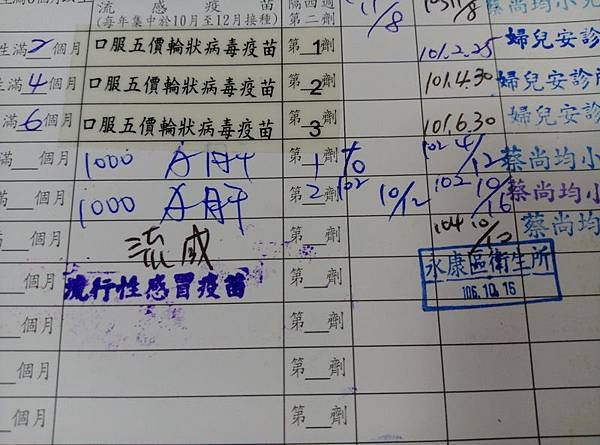 流感疫苗
(每年集中於10月至12月接種)
隔週
第二劑
11/8
10311/8
蔡尚均小兒
生滿2個月 口服五價輪狀病毒疫苗 第1劑 101.2.25 婦兒安診
生滿4個月 口服五價輪狀病毒疫苗 第2劑 101.4.30 婦兒安診所
滿6個月 口服五價輪狀病毒疫苗 第3劑 101.6.30 婦兒安診
滿__個月 1000 A肝 第1劑 102 4/12 蔡尚均小
滿__個月 1000 A肝 第2劑 102 10/12 102 10/16 蔡尚均小
滿__個月 流感 第__劑 104 10/12 蔡尚均小
__個月 流行性感冒疫苗 第__劑 永康區衛生所
106.10.16
__個月 第__劑
__個月 第__劑
__個月 第__劑